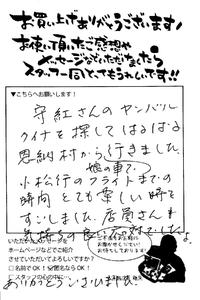 お買い上げありがとうございます!
お使い頂いたご感想や
メッセージなどいただけましたら
スタッフ一同とてもうれしいです!!
▼こちらへお願いします!
守紅さんのヤンバル
クイナを探してはるばる
恩納村から行きました。
娘の車で
小松行のフライトまでの
時間 とても楽しい時を
すごしました。店員さんも
気持ちの良い応対でしたよ。
いただいたメッセージを
ホームページなどでご紹介
させていただいてよろしいですか?
□名前でOK! □匿名ならOK!
□スタッフの心の中に
ありがとうございました。